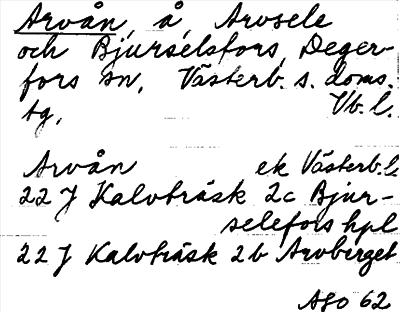 Arvån, å, Arvsele
och Bjurselsfors, Deger-
fors sn, Västerb. s. doms.
tg, Vb. l.
Arvån ek Västerb. l
22 J Kalvträsk 2c Bjur-
selefors hpl
22 J Kalvträsk 2b Arvberget
AGO 62